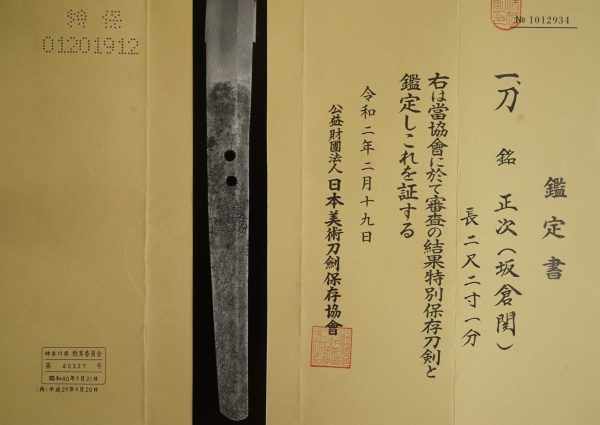 № 1012934
鑑定書
一、刀 銘 正次(坂倉関)
長二尺二寸一分
右は當協會に於て審査の結果特別保存刀剣と
鑑定しこれを証する
令和二年二月十九日
公益財團法人 日本美術刀劍保存協會
特保
01201912
神奈川県 教育委員会
第 40327 号
昭和40年9月21日
(再)平成29年9月20日